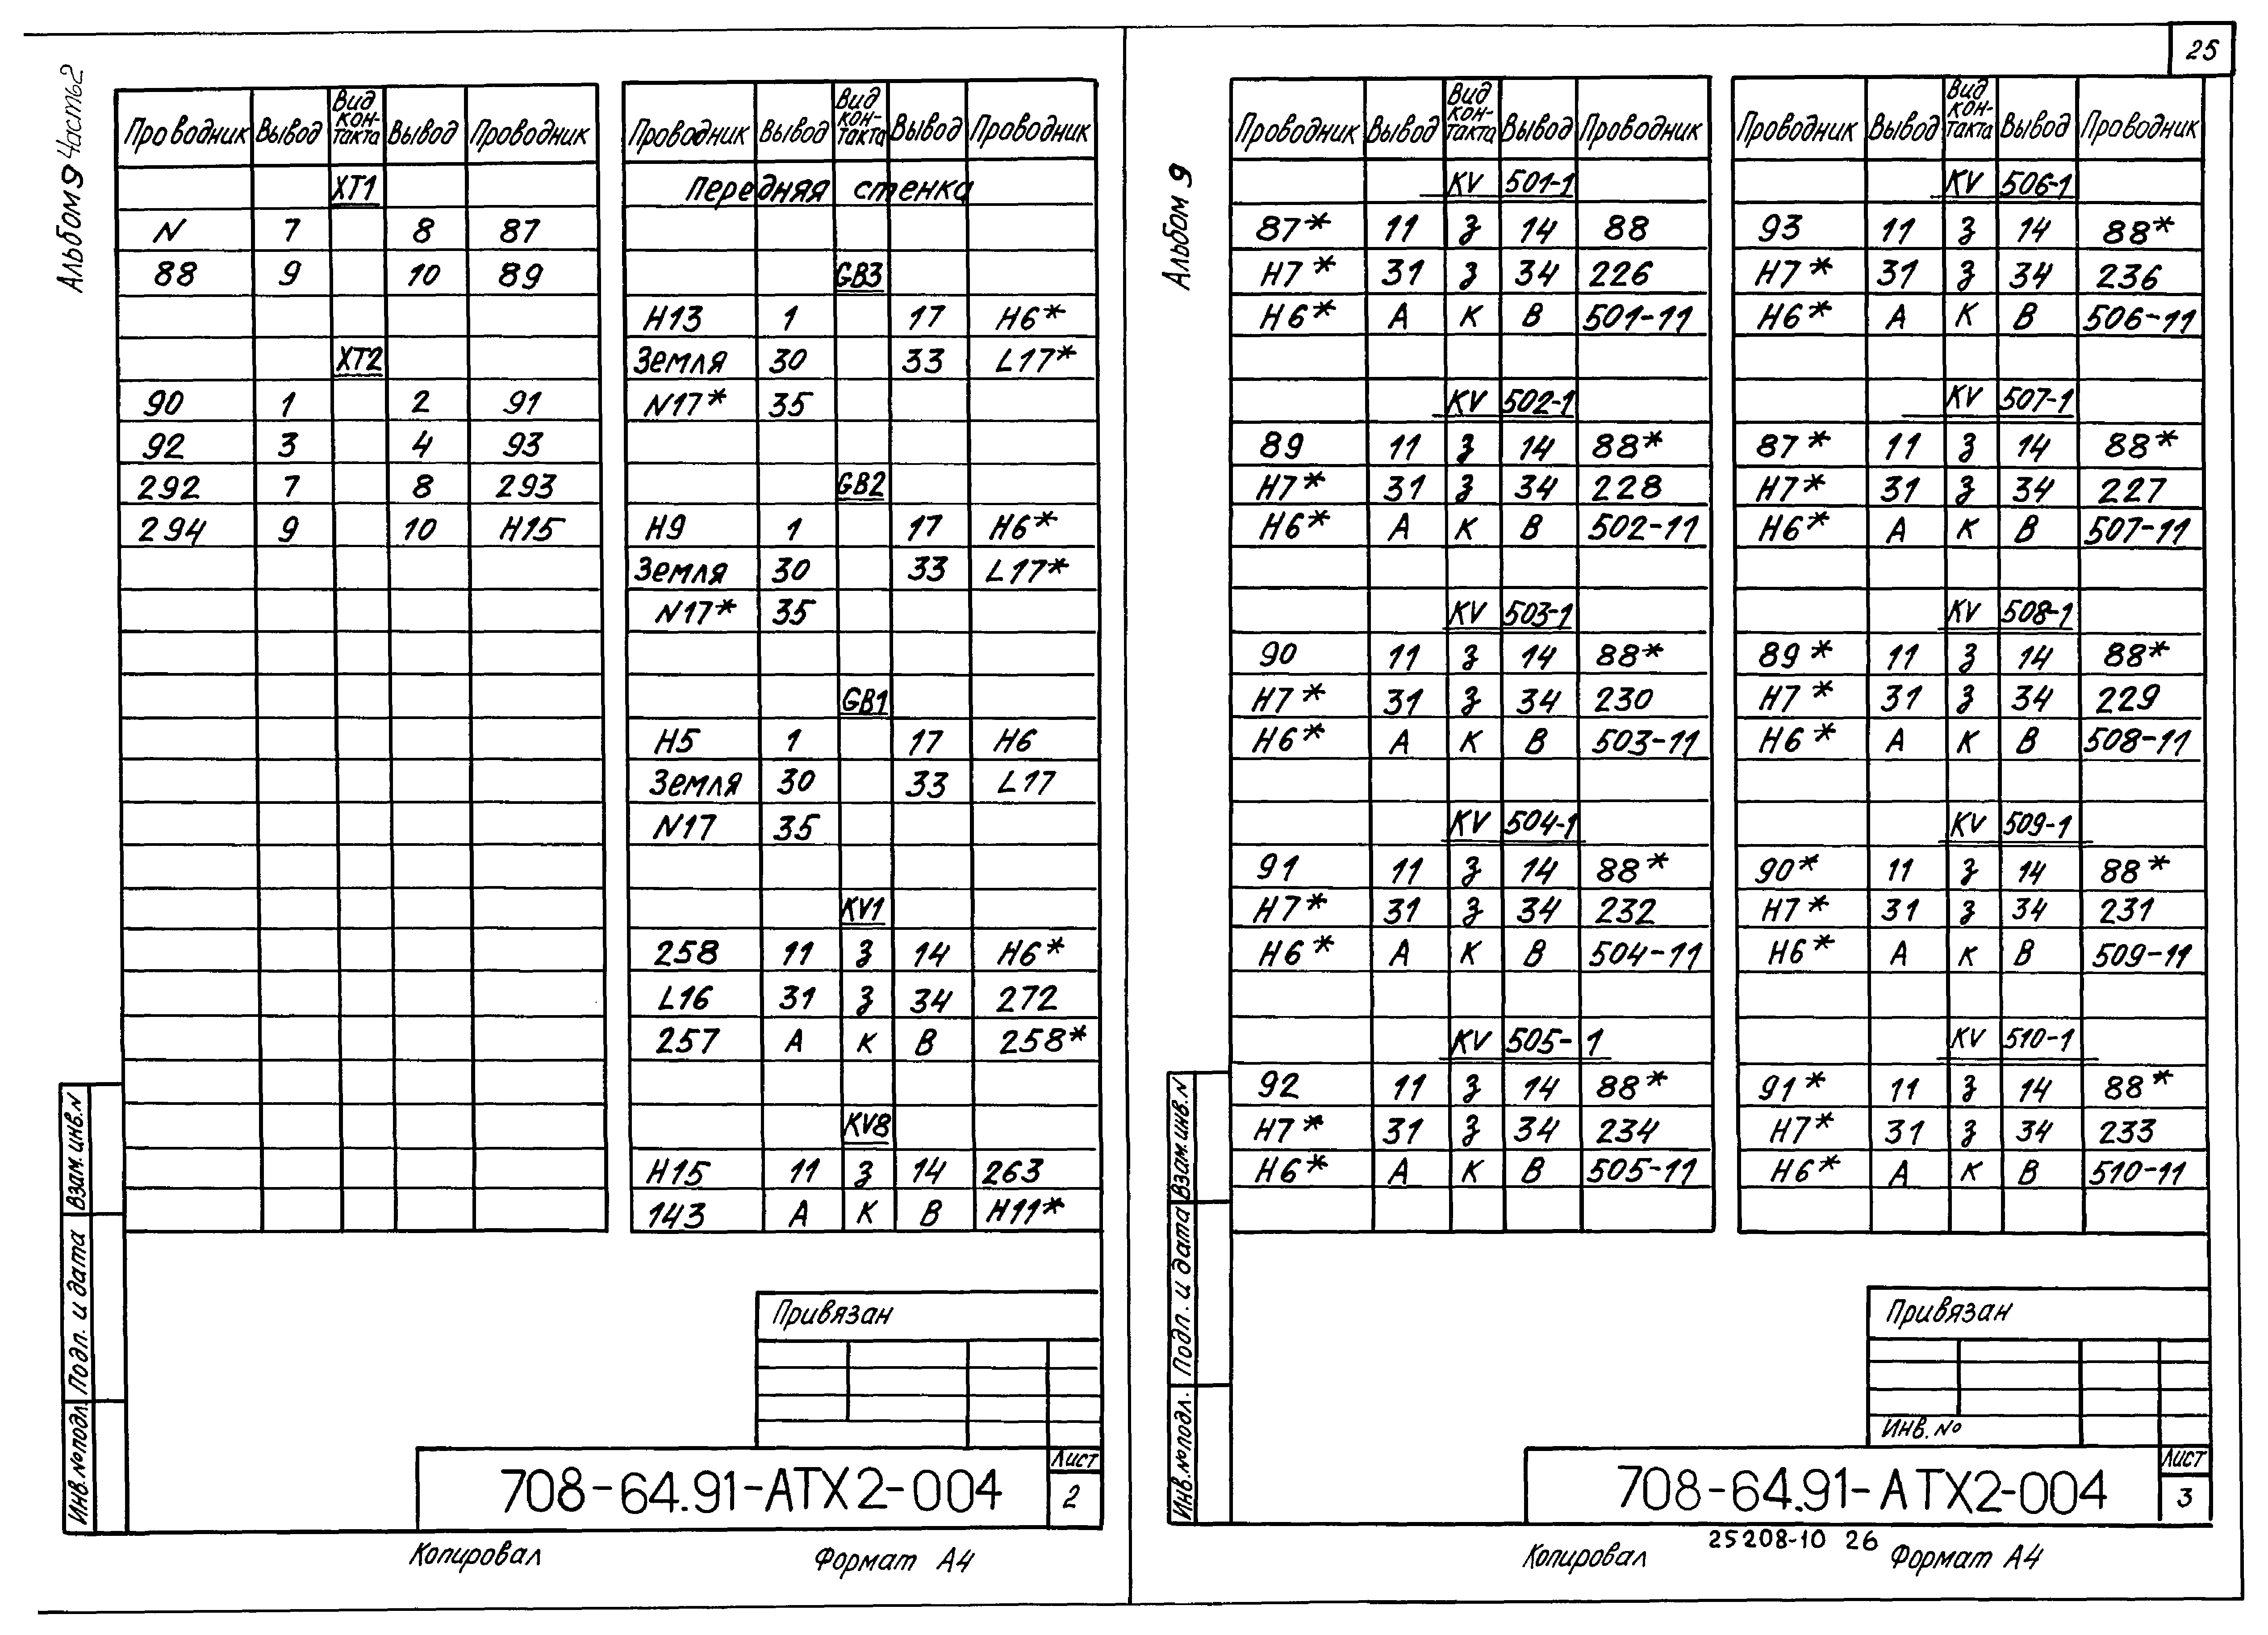 25
Альбом 9 Часть 2
Проводник Вывод Вид кон-такта Вывод Проводник
XT1
N 7 8 87
88 9 10 89
XT2
90 1 2 91
92 3 4 93
292 7 8 293
294 9 10 Н15
Проводник Вывод Вид кон-такта Вывод Проводник
Передняя стенка
GB3
Н13 1 17 Н6*
Земля 30 33 L17*
N17* 35
GB2
Н9 1 17 Н6*
Земля 30 33 L17*
N17* 35
GB1
Н5 1 17 Н6
Земля 30 33 L17
N17 35
KV1
258 11 З 14 Н6*
L16 31 З 34 272
257 А К В 258*
KV8
Н15 11 З 14 263
143 А К В Н11*
Взам. инв. N
Подп. и дата
Инв. № подл.
Привязан
708-64.91-АТХ2-004
Лист
2
Копировал Формат А4
Альбом 9
Проводник Вывод Вид кон-такта Вывод Проводник
KV 501-1
87* 11 З 14 88
Н7* 31 З 34 226
Н6* А К В 501-11
KV 502-1
89 11 З 14 88*
Н7* 31 З 34 228
Н6* А К В 502-11
KV 503-1
90 11 З 14 88*
Н7* 31 З 34 230
Н6* А К В 503-11
KV 504-1
91 11 З 14 88*
Н7* 31 З 34 232
Н6* А К В 504-11
KV 505-1
92 11 З 14 88*
Н7* 31 З 34 234
Н6* А К В 505-11
Проводник Вывод Вид кон-такта Вывод Проводник
KV 506-1
93 11 З 14 88*
Н7* 31 З 34 236
Н6* А К В 506-11
KV 507-1
87* 11 З 14 88*
Н7* 31 З 34 227
Н6* А К В 507-11
KV 508-1
89* 11 З 14 88*
Н7* 31 З 34 229
Н6* А К В 508-11
KV 509-1
90* 11 З 14 88*
Н7* 31 З 34 231
Н6* А К В 509-11
KV 510-1
91* 11 З 14 88*
Н7* 31 З 34 233
Н6* А К В 510-11
Взам. инв. N
Подп. и дата
Инв. № подл.
Привязан
Инв. №
708-64.91-АТХ2-004
Лист
3
25208-10 26
Копировал Формат А4